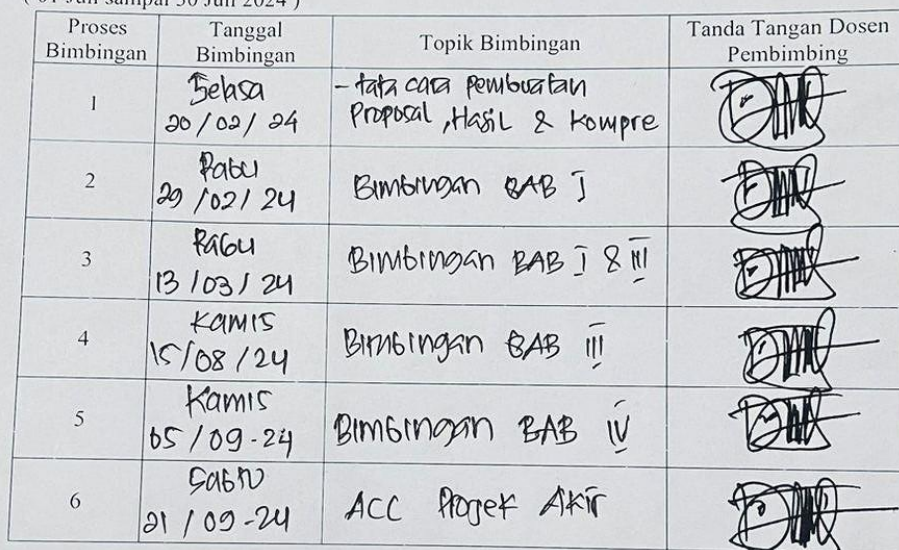 ( 01 Juli sampai 30 Juli 2024 )
Proses Bimbingan
Tanggal Bimbingan
Topik Bimbingan
Tanda Tangan Dosen Pembimbing
1
Selasa
20/02/24
- tata cara pembuatan
Proposal, Hasil & Kompre
2
Rabu
29/02/24
Bimbingan BAB I
3
Rabu
13/03/24
Bimbingan BAB I & III
4
Kamis
15/08/24
Bimbingan BAB III
5
Kamis
05/09-24
Bimbingan BAB IV
6
Sabtu
21/09-24
ACC Projek Akir